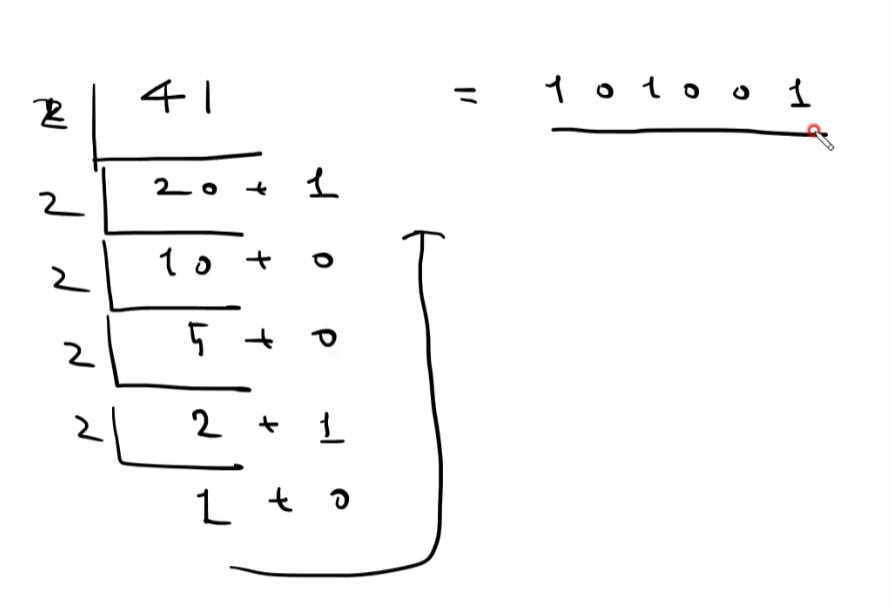 2 41 = 1 0 1 0 0 1
2 20 + 1
2 10 + 0
2 5 + 0
2 2 + 1
1 + 0